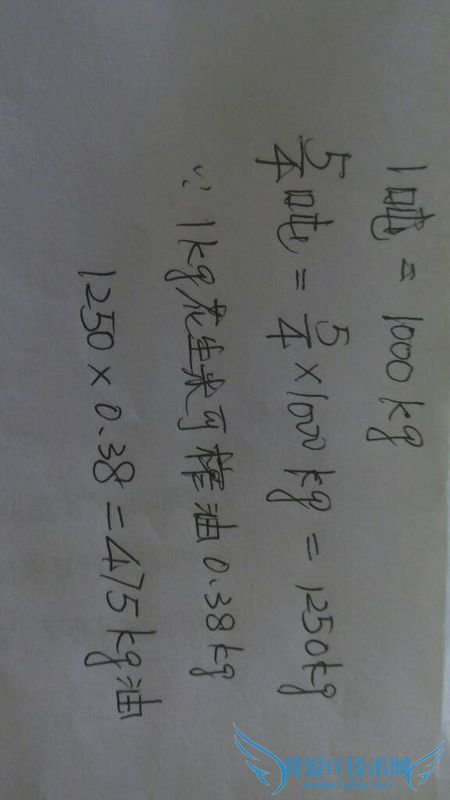 1吨 = 1000 kg
5/4吨 = 5/4 × 1000 kg = 1250kg
∵ 1kg花生米可榨油0.38kg
1250 × 0.38 = 475kg油